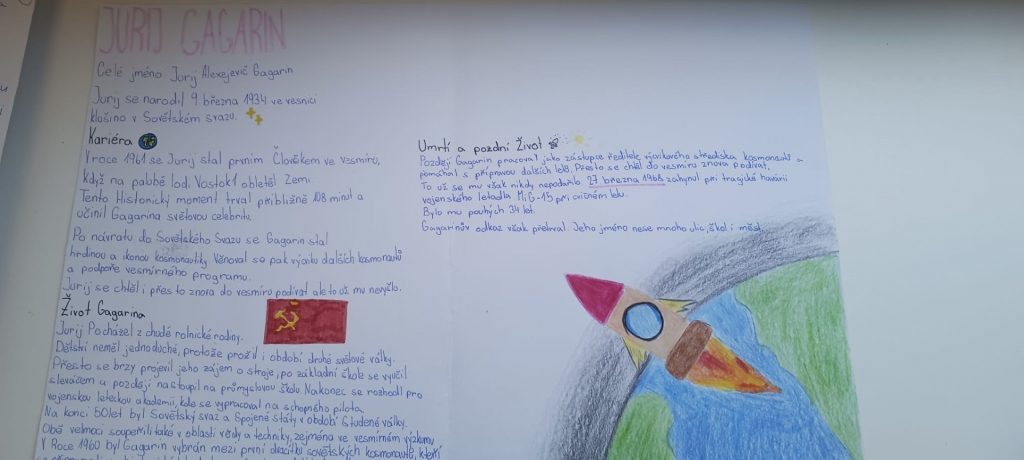 JURIJ GAGARIN
Celé jméno Jurij Alexejevič Gagarin
Jurij se narodil 9. března 1934 ve vesnici
klušino v Sovětském svazu.
Kariéra
V roce 1961 se Jurij stal prvním Člověkem ve vesmíru,
když na palubě lodi Vostok1 obletěl Zemi.
Tento Historický moment trval přibližně 108 minut a
učinil Gagarina světovou celebritu.
Po návratu do Sovětského Svazu se Gagarin stal
hrdinou a ikonou kosmonautiky. Věnoval se pak výcviku dalších kosmonautů
a podpoře vesmírného programu.
Jurij se chtěl i přes to znova do vesmíru podívat ale to už mu nevyšlo.
Život Gagarina
Jurij Pocházel z chudé rolnické rodiny.
Dětství neměl jednoduché, protože prožil i období druhé světové války.
Přesto se brzy projevil jeho zájem o stroje, po základní škole se vyučil
slévačem a později nastoupil na průmyslovou školu. Nakonec se rozhodl pro
vojenskou leteckou akademii, kde se vypracoval na schopného pilota.
Na konci 50let byl Sovětský svaz a Spojené státy v období Studené války.
Obě velmoci soupeřili také v oblasti vědy a techniky, zejména ve vesmírném výzkumu.
V Roce 1960 byl Gagarin vybrán mezi první dvacítku sovětských kosmonautů, kteří
Umrtí a pozdní Život
Později Gagarin pracoval jako zástupce ředitele výcvikového střediska kosmonautů a
pomáhal s přípravou dalších letů. Přesto se chtěl do vesmíru znova podívat.
To už se mu však nikdy nepodařilo. 27 března 1968 zahynul při tragické havárii
vojenského letadla MiG-15 při cvičném letu.
Bylo mu pouhých 34 let.
Gagarinův odkaz však přetrval. Jeho jméno nese mnoho ulic, škol i měst.